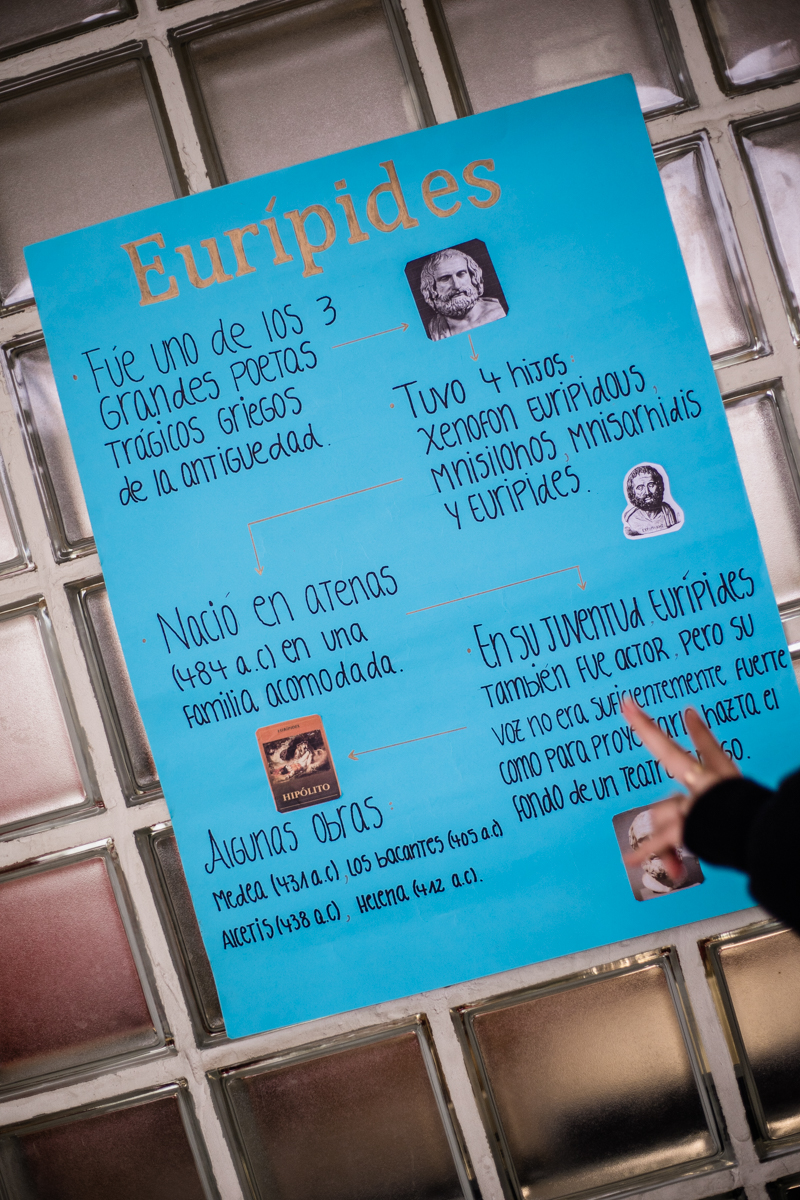 Eurípides
Fúe uno de los 3
Grandes poetas
trágicos griegos
de la antiguedad.
Tuvo 4 hijos:
Xenofon Euripidous,
Mnisilohos, Mnisarhidis
y Euripides.
Nació en atenas
(484 a.c) en una
familia acomodada.
En su juventud, Eurípides
también fue actor, pero su
voz no era suficientemente fuerte
como para hazta el
fondo de un
HIPÓLITO
Algunas obras:
Medea (431 a.c), los bacantes (405 a.c)
Alcetis (438 a.c), Helena (412 a.c).